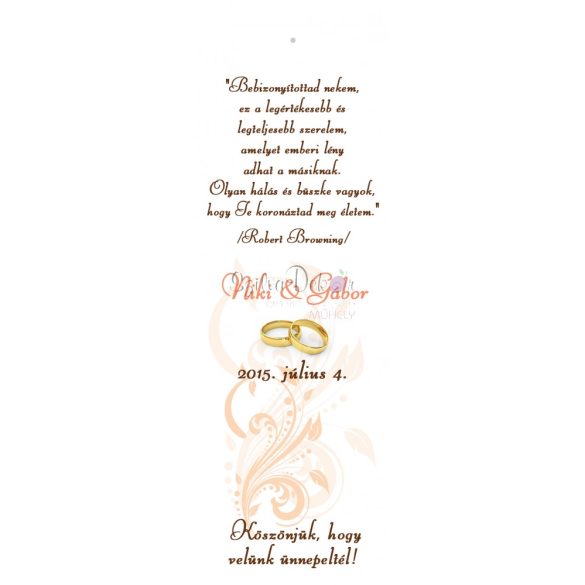 "Bebizonyítottad nekem,
ez a legértékesebb és
legteljesebb szerelem,
amelyet emberi lény
adhat a másiknak.
Olyan hálás és büszke vagyok,
hogy Te koronáztad meg életem."
/Robert Browning/
Niki & Gábor
MŰHELY
2015. július 4.
Köszönjük, hogy
velünk ünnepeltél!